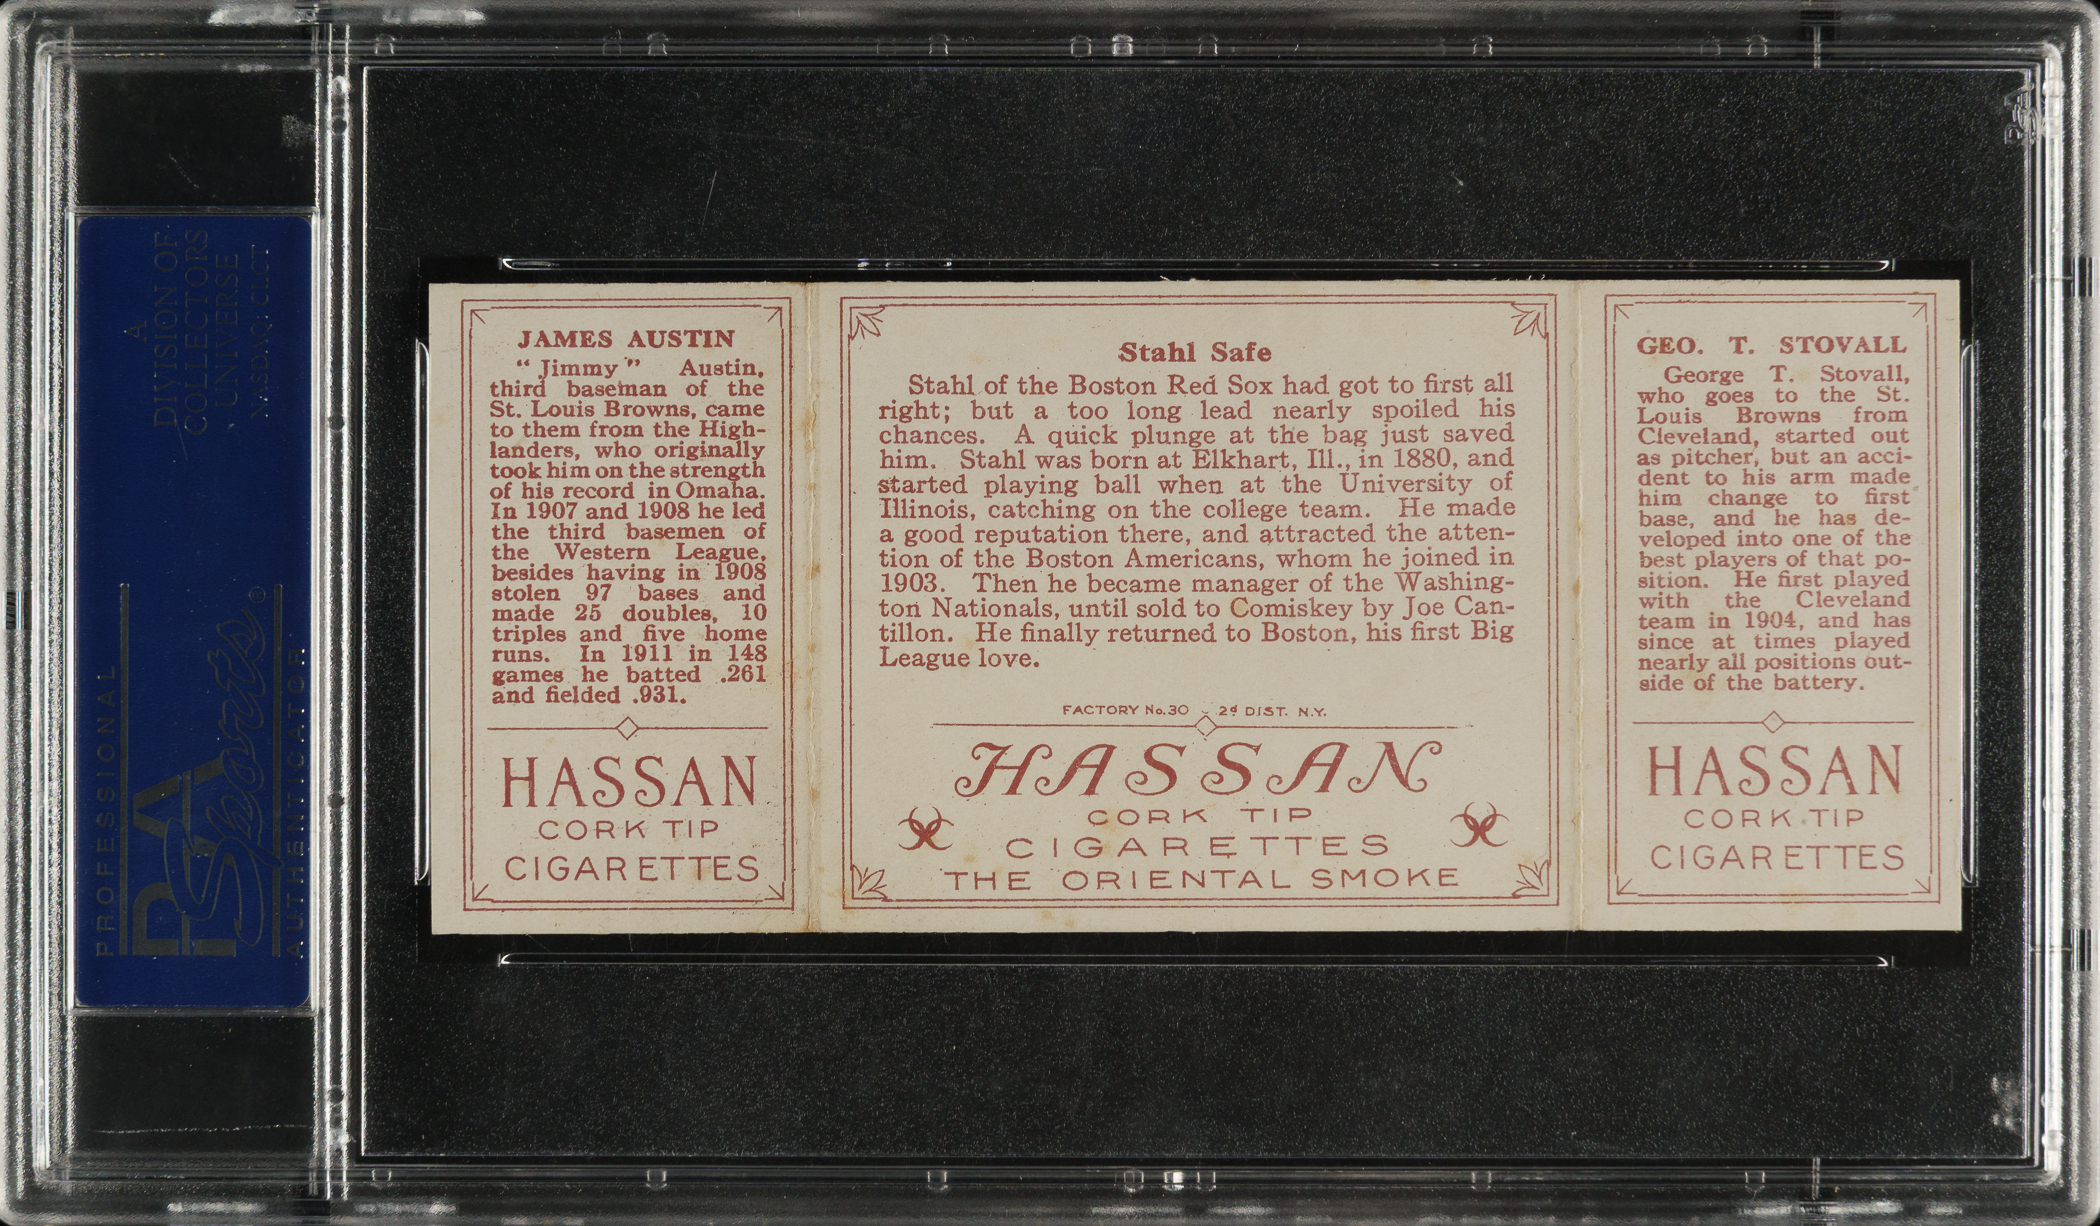 A
DIVISION OF
COLLECTORS
UNIVERSE
NASDAQ: CLCT
PROFESSIONAL
PSA
Sports®
AUTHENTICATOR
JAMES AUSTIN
“ Jimmy ” Austin,
third baseman of the
St. Louis Browns, came
to them from the High-
landers, who originally
took him on the strength
of his record in Omaha.
In 1907 and 1908 he led
the third basemen of
the Western League,
besides having in 1908
stolen 97 bases and
made 25 doubles, 10
triples and five home
runs. In 1911 in 148
games he batted .261
and fielded .931.
HASSAN
CORK TIP
CIGARETTES
Stahl Safe
Stahl of the Boston Red Sox had got to first all
right; but a too long lead nearly spoiled his
chances. A quick plunge at the bag just saved
him. Stahl was born at Elkhart, Ill., in 1880, and
started playing ball when at the University of
Illinois, catching on the college team. He made
a good reputation there, and attracted the atten-
tion of the Boston Americans, whom he joined in
1903. Then he became manager of the Washing-
ton Nationals, until sold to Comiskey by Joe Can-
tillon. He finally returned to Boston, his first Big
League love.
FACTORY No. 30 - 2d DIST. N.Y.
HASSAN
CORK TIP
CIGARETTES
THE ORIENTAL SMOKE
GEO. T. STOVALL
George T. Stovall,
who goes to the St.
Louis Browns from
Cleveland, started out
as pitcher, but an acci-
dent to his arm made
him change to first
base, and he has de-
veloped into one of the
best players of that po-
sition. He first played
with the Cleveland
team in 1904, and has
since at times played
nearly all positions out-
side of the battery.
HASSAN
CORK TIP
CIGARETTES
PSA